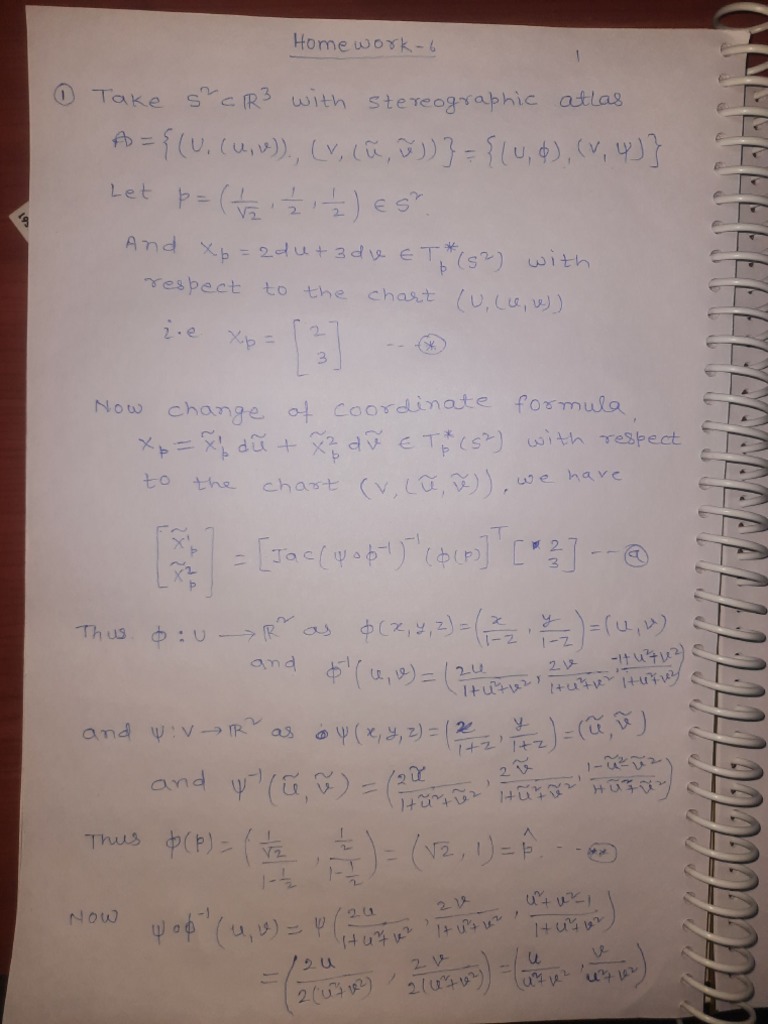 Homework-6
1
① Take S² ⊂ ℝ³ with stereographic atlas
A = {(U, (u,v)), (V, (ũ, ṽ))} = {(U, ϕ), (V, ψ)}
Let p = (1/√2, 1/2, 1/2) ∈ S².
And Xp = 2du + 3dv ∈ Tp*(S²) with
respect to the chart (U, (u,v))
i.e Xp = [2 3] --- ⊛
Now change of coordinate formula,
Xp = X̃p¹ dũ + X̃p² dṽ ∈ Tp*(S²) with respect
to the chart (V, (ũ, ṽ)), we have
[X̃p¹ X̃p²] = [Jac(ψ∘ϕ⁻¹)⁻¹(ϕ(p)]ᵀ [2 3] --- ⓐ
Thus ϕ : U → ℝ² as ϕ(x,y,z) = (x/(1-z), y/(1-z)) = (u,v)
and ϕ⁻¹(u,v) = (2u/(1+u²+v²), 2v/(1+u²+v²), (-1+u²+v²)/(1+u²+v²))
and ψ : V → ℝ² as ψ(x,y,z) = (x/(1+z), y/(1+z)) = (ũ, ṽ)
and ψ⁻¹(ũ, ṽ) = (2ũ/(1+ũ²+ṽ²), 2ṽ/(1+ũ²+ṽ²), (1-ũ²-ṽ²)/(1+ũ²+ṽ²))
Thus ϕ(p) = ((1/√2)/(1-1/2), (1/2)/(1-1/2)) = (√2, 1) = p̂. --- (**)
Now ψ∘ϕ⁻¹(u,v) = ψ(2u/(1+u²+v²), 2v/(1+u²+v²), (u²+v²-1)/(1+u²+v²))
= (2u/(2(u²+v²)), 2v/(2(u²+v²))) = (u/(u²+v²), v/(u²+v²))